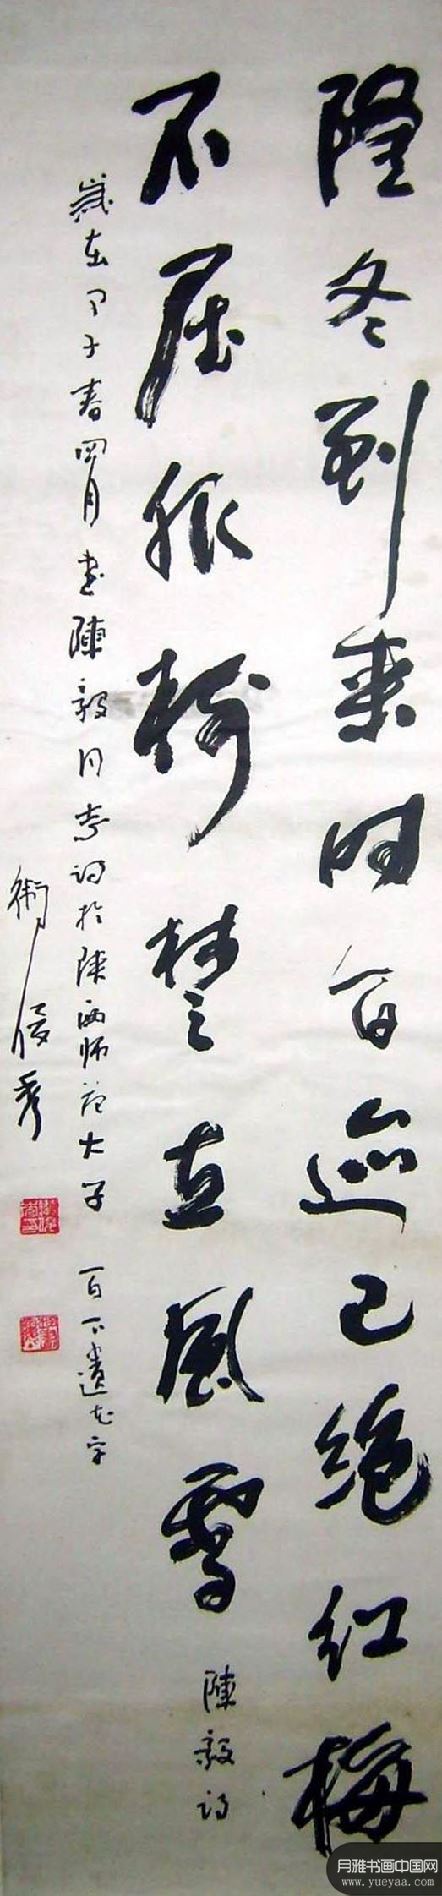 隆冬到来时百迹已绝红梅
不屈服树楚立风雪
陳毅詩
歲在甲子春四月書陳毅同志詩於陕西师范大学 百下遗花字
衛俊秀
月雅书画中国网
www.yueyaa.com